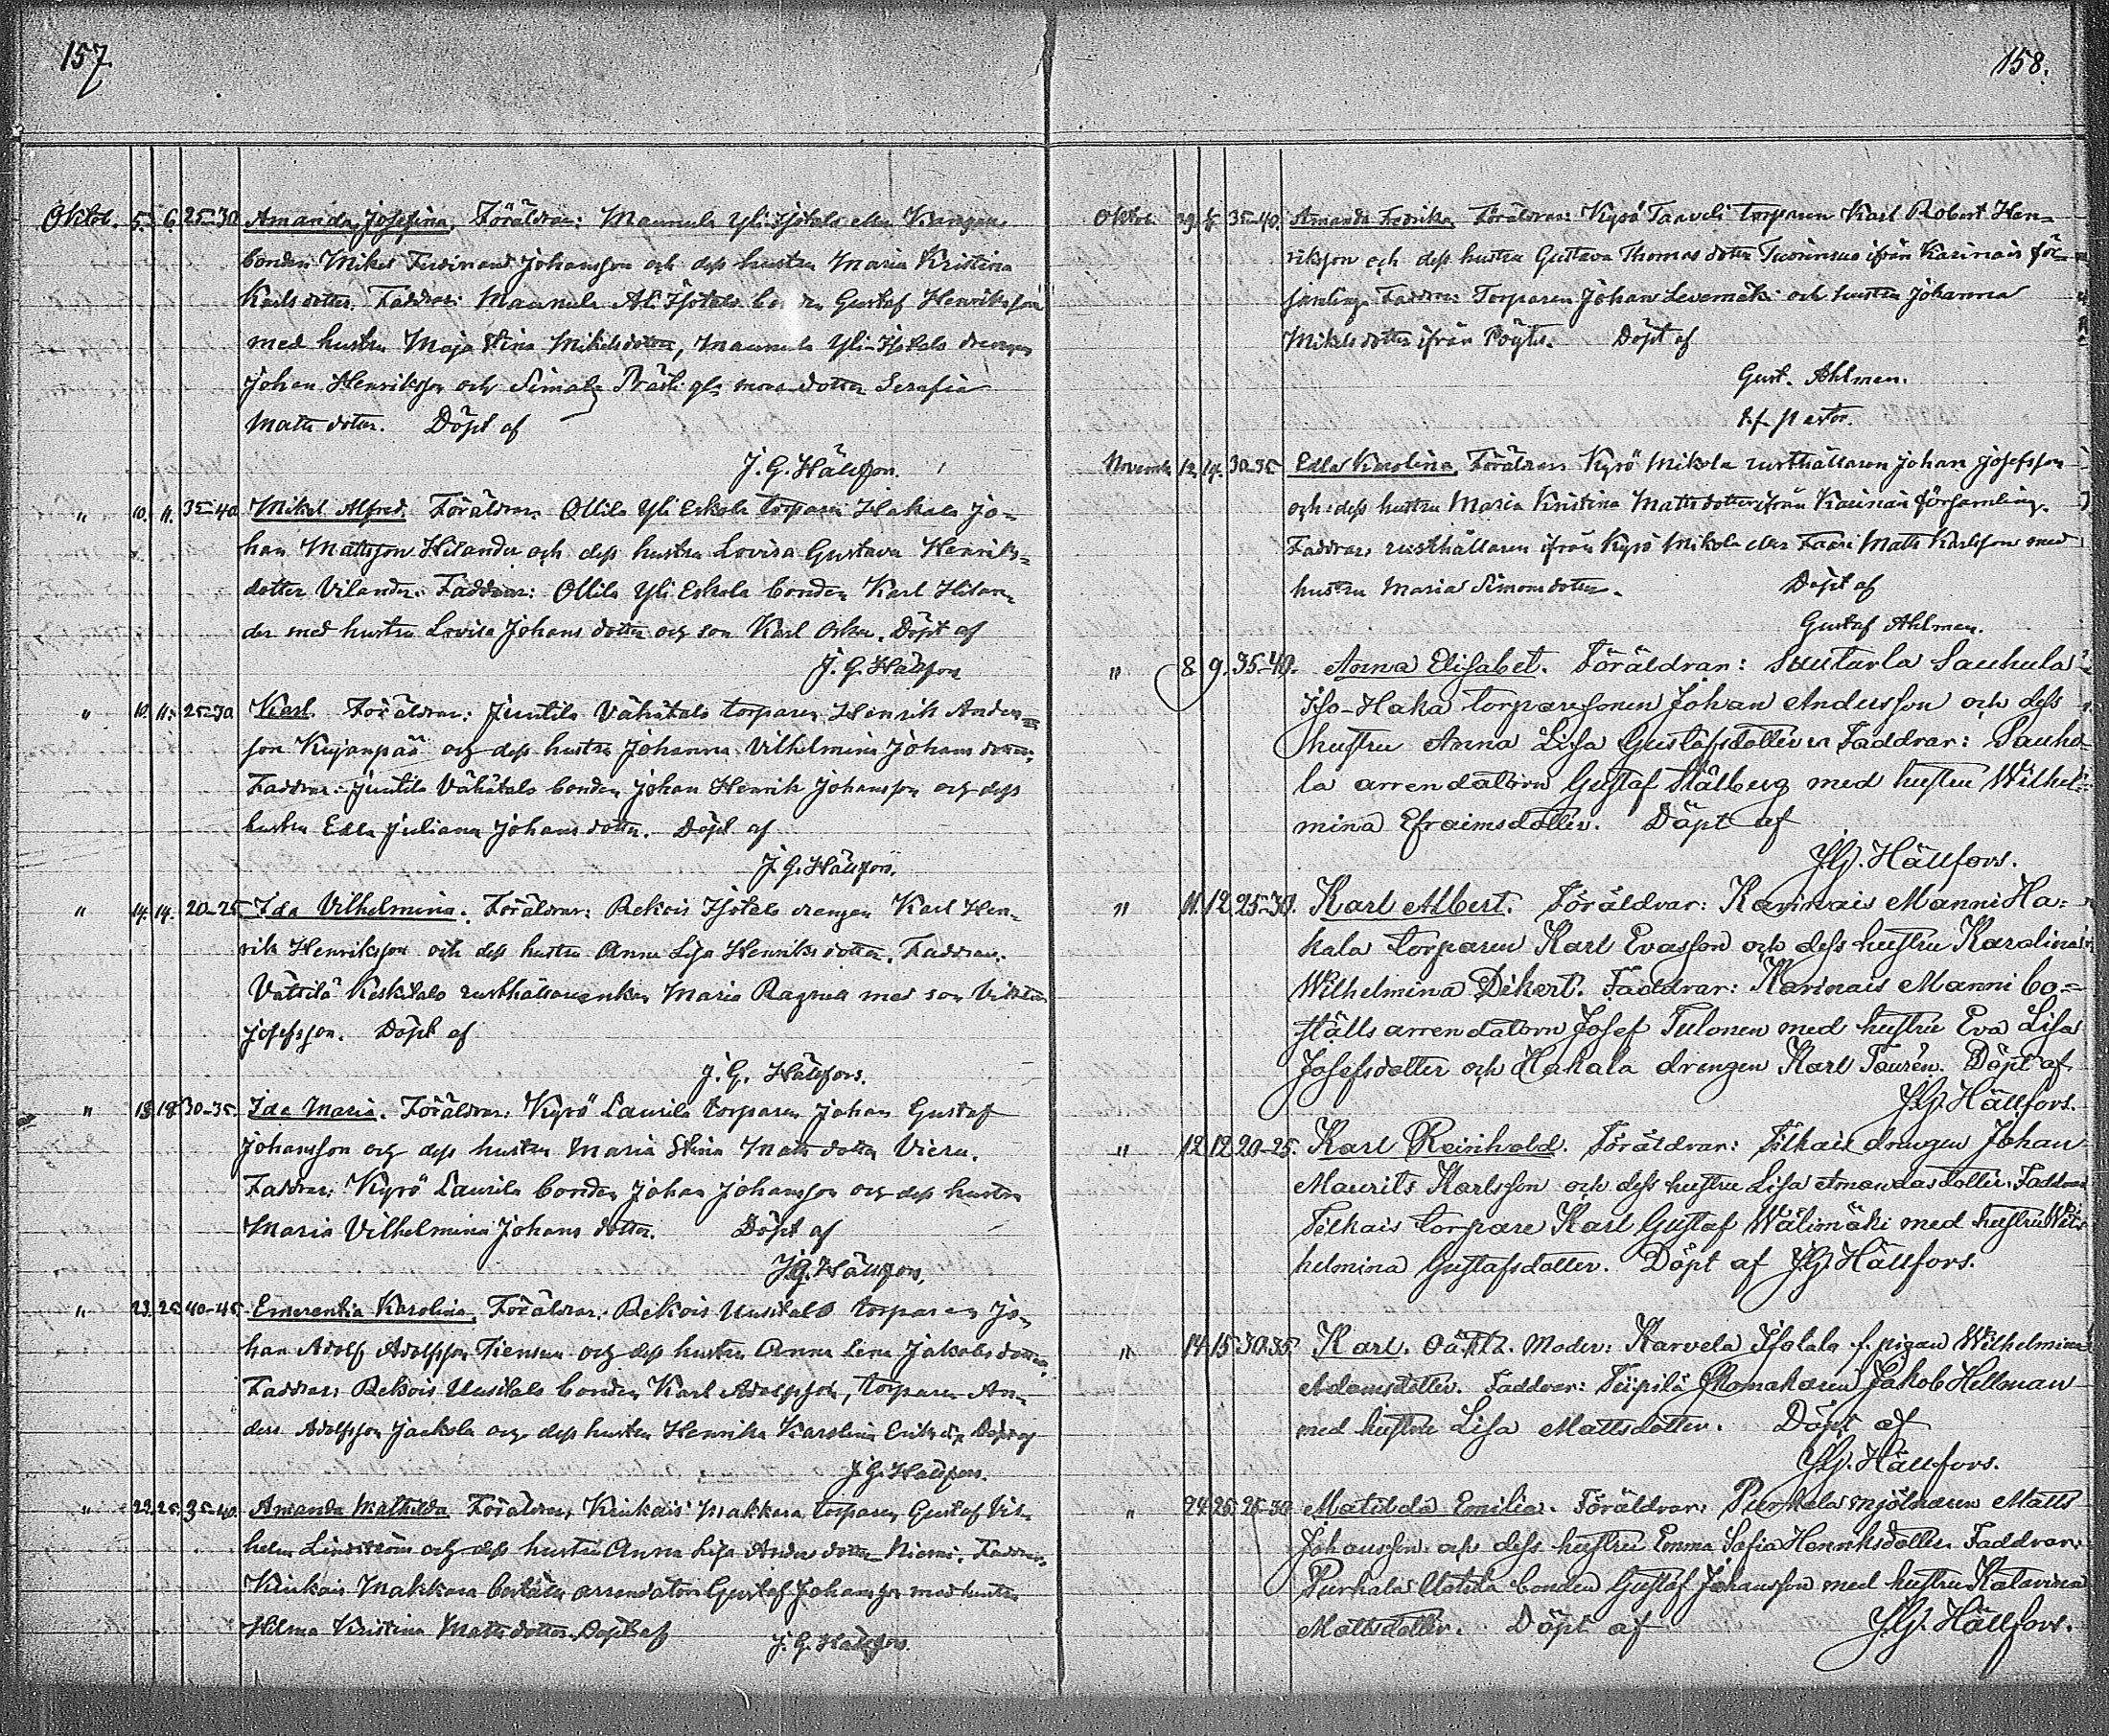 157.
Oktob. 5. 6. 25-30 Amanda Josefina. Föräldrar: Maunula Yli-Isotalo eller Kangas
bonden Mikel Ferdinand Johansson och dess hustru Maria Kristina
Karlsdotter. Faddrar: Maunula Ali Isotalo bonden Gustaf Henriksson
med hustru Maja Stina Mikelsdotter, Maunula Yli-Isotalo drengen
Johan Henriksson och Simala Präst dotter Serafia
Matts dotter. Döpt af
J. G. Hällfors.
" 10. 11. 35-40 Mikel Alfred. Föräldrar: Ollila Yli Eskola torparen Hakala Jo-
han Mattsson Hilander och dess hustru Lovisa Gustava Henriks-
dotter Vilander. Faddrar: Ollila Yli Eskola bonden Karl Hilan-
der med hustru Lovisa Johans dotter och son Karl Oskar. Döpt af
J. G. Hällfors
" 10. 11. 25-30 Karl. Föräldrar: Juntila Vähätalo torparen Henrik Anders-
son Kujanpää och dess hustru Johanna Vilhelmina Johans dotter.
Faddrar: Juntila Vähätalo bonden Johan Henrik Johansson och dess
hustru Edla Juliana Johans dotter. Döpt af
J. G. Hällfors.
" 14. 14. 20-25 Ida Vilhelmina. Föräldrar: Rekois Isotalo drengen Karl Hen-
rik Henriksson och dess hustru Anna Lisa Henriks dotter. Faddrar:
Vättilä Keskitalo rusthållarenkan Maria Ragnell med son Viktor
Josefsson. Döpt af
J. G. Hällfors.
" 18. 18. 30-35. Ida Maria. Föräldrar: Kyrö Laurila torparen Johan Gustaf
Johansson och dess hustru Maria Stina Matts dotter Vieru.
Faddrar: Kyrö Laurila bonden Johan Johansson och dess hustru
Maria Vilhelmina Johans dotter. Döpt af
J. G. Hällfors.
" 23. 25. 40-45. Emerentia Karolina. Föräldrar: Rekois Uusitalo torparen Jo-
han Adolf Adolfsson Tiensuu och dess hustru Anna Lena Jakobs dotter
Faddrar: Rekois Uusitalo bonden Karl Adolfsson, torparen An-
ders Adolfsson Jaakola och dess hustru Henrika Karolina Eriksd:r. Döpt af
J. G. Hällfors.
" 23. 25. 35-40. Amanda Mathilda. Föräldrar: Kinkais Makkara torparen Gustaf Vil-
helm Lindström och dess hustru Anna Lisa Anders dotter Niemi. Faddrar:
Kinkais Makkara boställs arrendatorn Gustaf Johansson med hustru
Hilma Kristina Matts dotter. Döpt af J. G. Hällfors.
158.
Oktob. 29. 35-40. Amanda Fredrika. Föräldrar: Kyrö Taaveli torparen Karl Robert Hen-
riksson och dess hustru Gustava Thomas dotter ifrån Karinais för-
samling. Faddrar: Torparen Johan Levomäki och hustru Johanna
Mikels dotter ifrån Pöytis. Döpt af
Gust. Ahlman.
t. f. pastor.
Novemb. 12. 14. 30-35 Edla Karolina. Föräldrar: Kyrö Mikola rusthållaren Johan Josefsson
och dess hustru Maria Kristina Matts dotter ifrån Karinais församling.
Faddrar: rusthållaren ifrån Kyrö Mikola eller Faari Matts Karlsson med
hustru Maria Simons dotter. Döpt af
Gustaf Ahlman.
" 8. 9. 35-40. Anna Elisabet. Föräldrar: Suutarla Sauhula
Iso-Haka torparesonen Johan Andersson och dess
hustru Anna Lisa Gustafsdotter. Faddrar: Sauhu-
la arrendatorn Gustaf Stålberg med hustru Wilhel-
mina Efraimsdotter. Döpt af
J.G. Hällfors.
" 11. 12. 25-30. Karl Albert. Föräldrar: Karinais Manni Ha-
kala torparen Karl Evasson och dess hustru Karolina
Wilhelmina Dikert. Faddrar: Karinais Manni bo-
ställs arrendatorn Josef Tulonen med hustru Eva Lisa
Josefsdotter och Hakala drengen Karl Taurén. Döpt af
J.G. Hällfors.
" 12 12 20-25. Karl Reinhold. Föräldrar: Tilkais drengen Johan
Maurits Karlsson och dess hustru Lisa Amandasdotter. Faddrar
Tilkais torpare Karl Gustaf Wälimäki med hustru Wil-
helmina Gustafsdotter. Döpt af J.G. Hällfors.
" 14 15 30-35 Karl. Oäkta. Moder: Karvela Isotalo f. pigan Wilhelmina
Adamsdotter. Faddrar: Tiipilä Skomakaren Jakob Hellman
med hustru Lisa Mattsdotter. Döpt af
J.G. Hällfors.
" 24. 25. 25-30 Matilda Emilia. Föräldrar: Purhala mjölnaren Matts
Johansson och dess hustru Emma Sofia Henriksdotter. Faddrar:
Purhala Uotila bonden Gustaf Johansson med hustru Katarina
Mattsdotter. Döpt af J.G. Hällfors.